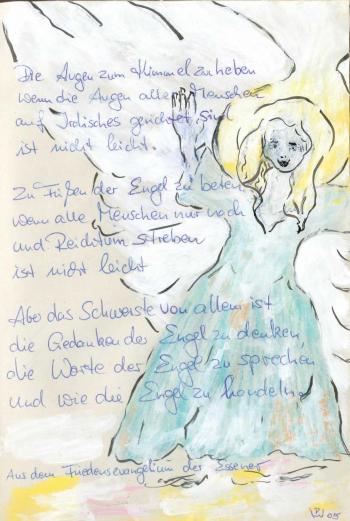 Die Augen zum Himmel zu heben
wenn die Augen aller Menschen
auf Irdisches gerichtet sind
ist nicht leicht.
Zu Füßen der Engel zu beten
wenn alle Menschen nur nach
und Reichtum streben
ist nicht leicht
Aber das Schwerste von allem ist
die Gedanken der Engel zu denken,
die Worte der Engel zu sprechen
und wie die Engel zu handeln.
Aus dem Friedensevangelium der Essener
05